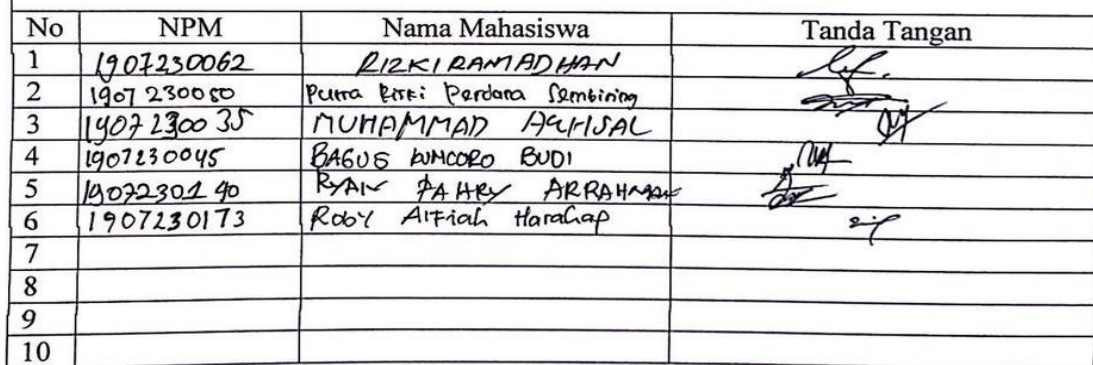 No NPM Nama Mahasiswa Tanda Tangan
1 1907230062 RIZKI RAMADHAN
2 1907230050 Putra Rizki Perdana Sembiring
3 1907230035 MUHAMMAD
4 1907230045 BAGUS KUNCORO BUDI
5 1907230140 RYAN FAHRY ARRAHMAN
6 1907230173 Roby Alfiah Harahap
7
8
9
10